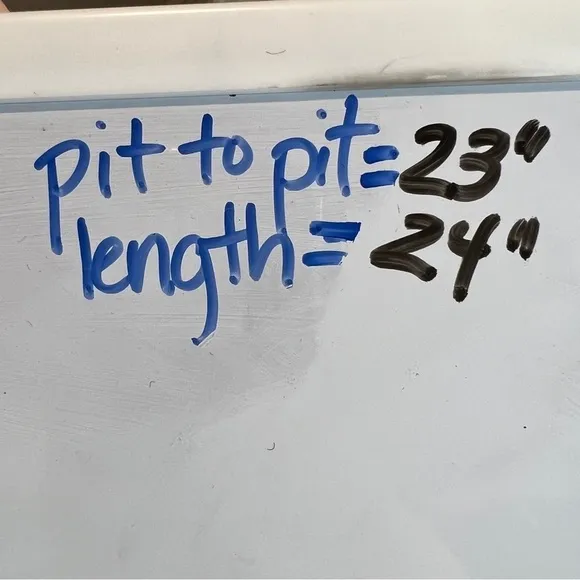 pit to pit=23"
length=24"